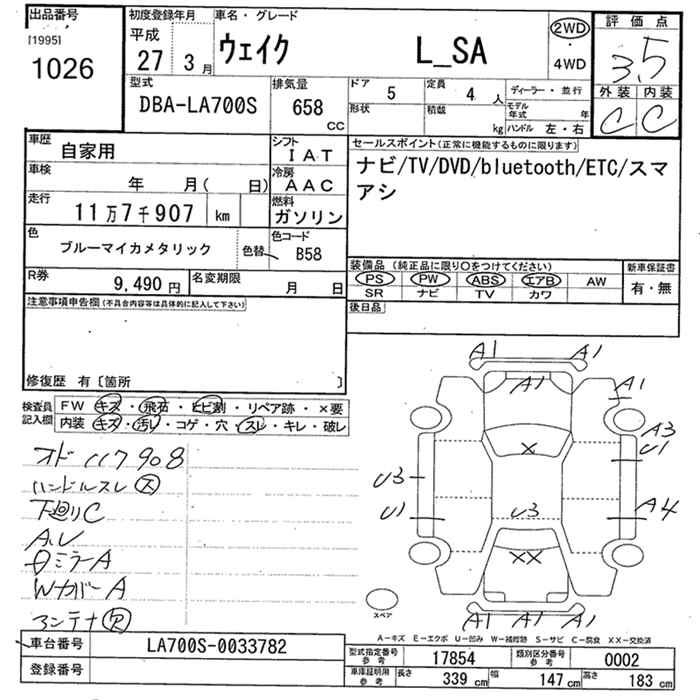 出品番号
[1995]
1026
初度登録年月
平成
27 3月
車名・グレード
ウェイク L_SA
2WD
・
4WD
評価点
3.5
外装 内装
C C
型式
DBA-LA700S
排気量
658
CC
ドア 5
定員 4 人
ディーラー・並行
形状
積載 kg
モデル年式 年
ハンドル 左・右
車歴
自家用
シフト
IAT
車検
年 月( 日)
冷房
AAC
走行
11万7千907 km
燃料
ガソリン
色
ブルーマイカメタリック
色替
色コード
B58
R券
9,490円
名変期限
月 日
セールスポイント(正常に機能するものに限ります)
ナビ/TV/DVD/bluetooth/ETC/スマ
アシ
装備品 (純正品に限り〇をつけてください)
PS PW ABS エアB AW
SR ナビ TV カワ
新車保証書
有・無
後日品
注意事項申告欄(不具合内容等は具体的に記入して下さい)
修復歴 有〔箇所 〕
検査員
記入欄
FW キズ・飛石・ヒビ割・リペア跡・×要
内装 キズ・汚レ・コゲ・穴・スレ・キレ・破レ
オド 117908
ハンドルスレ ス
下廻りC
A.U
ミラーA
WカバーA
アンテナ
A1 A1
A1 A1
A3
U1
U3
U1
A4
×
U3
××
A1 A1 A1
スペア
A-キズ E-エクボ U-凹み W-補修跡 S-サビ C-腐食 XX-交換済
車台番号 LA700S-0033782
登録番号
型式指定番号
参考
17854
類別区分番号
参考
0002
車庫証明用
参考
長さ 339 cm 幅 147 cm 高さ 183 cm